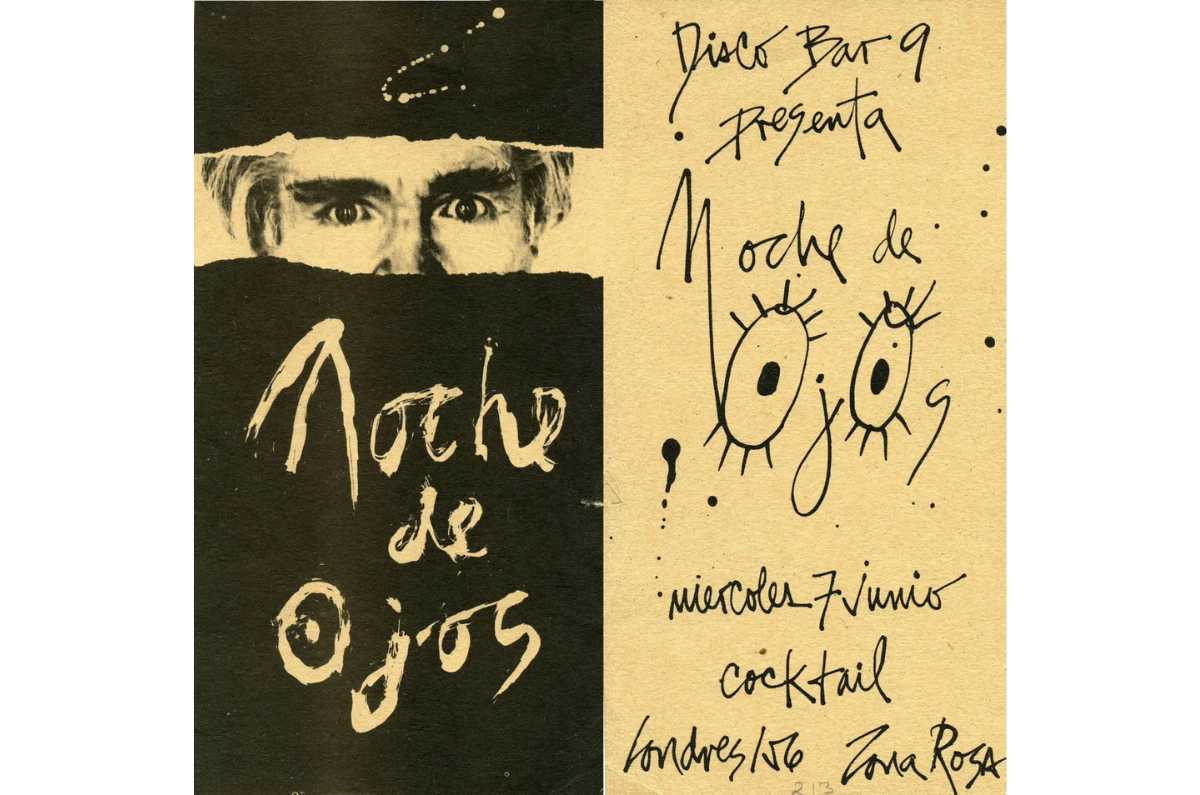 Noche
de
Ojos
Disco Bar 9
presenta
Noche de
Ojos
miercoles 7 junio
cocktail
Londres 156 Zona Rosa
213